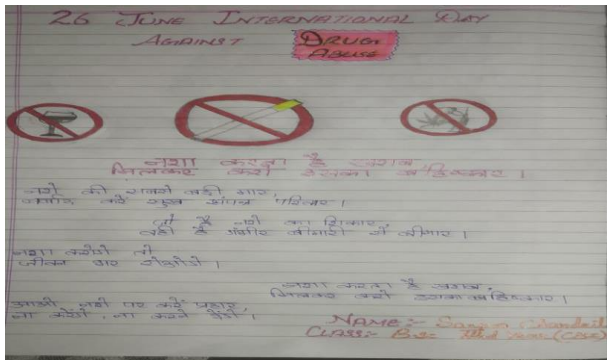 26 JUNE INTERNATIONAL DAY
AGAINST DRUG
ABUSE
नशा करता है खराब
मिलकर करो इसका बहिष्कार।
नशे की सबसे बड़ी मार,
बर्बाद करें सुखी संपन्न परिवार।
जो है नशे का शिकार,
वही है गंभीर बीमारी से बीमार।
नशा करोगे तो
जीवन भर रोओगे।
नशा करता है खराब,
मिलकर करो इसका बहिष्कार।
आओ, नशे पर करें प्रहार,
ना करेंगे, ना करने देंगे।
NAME:-
CLASS:- B.Sc